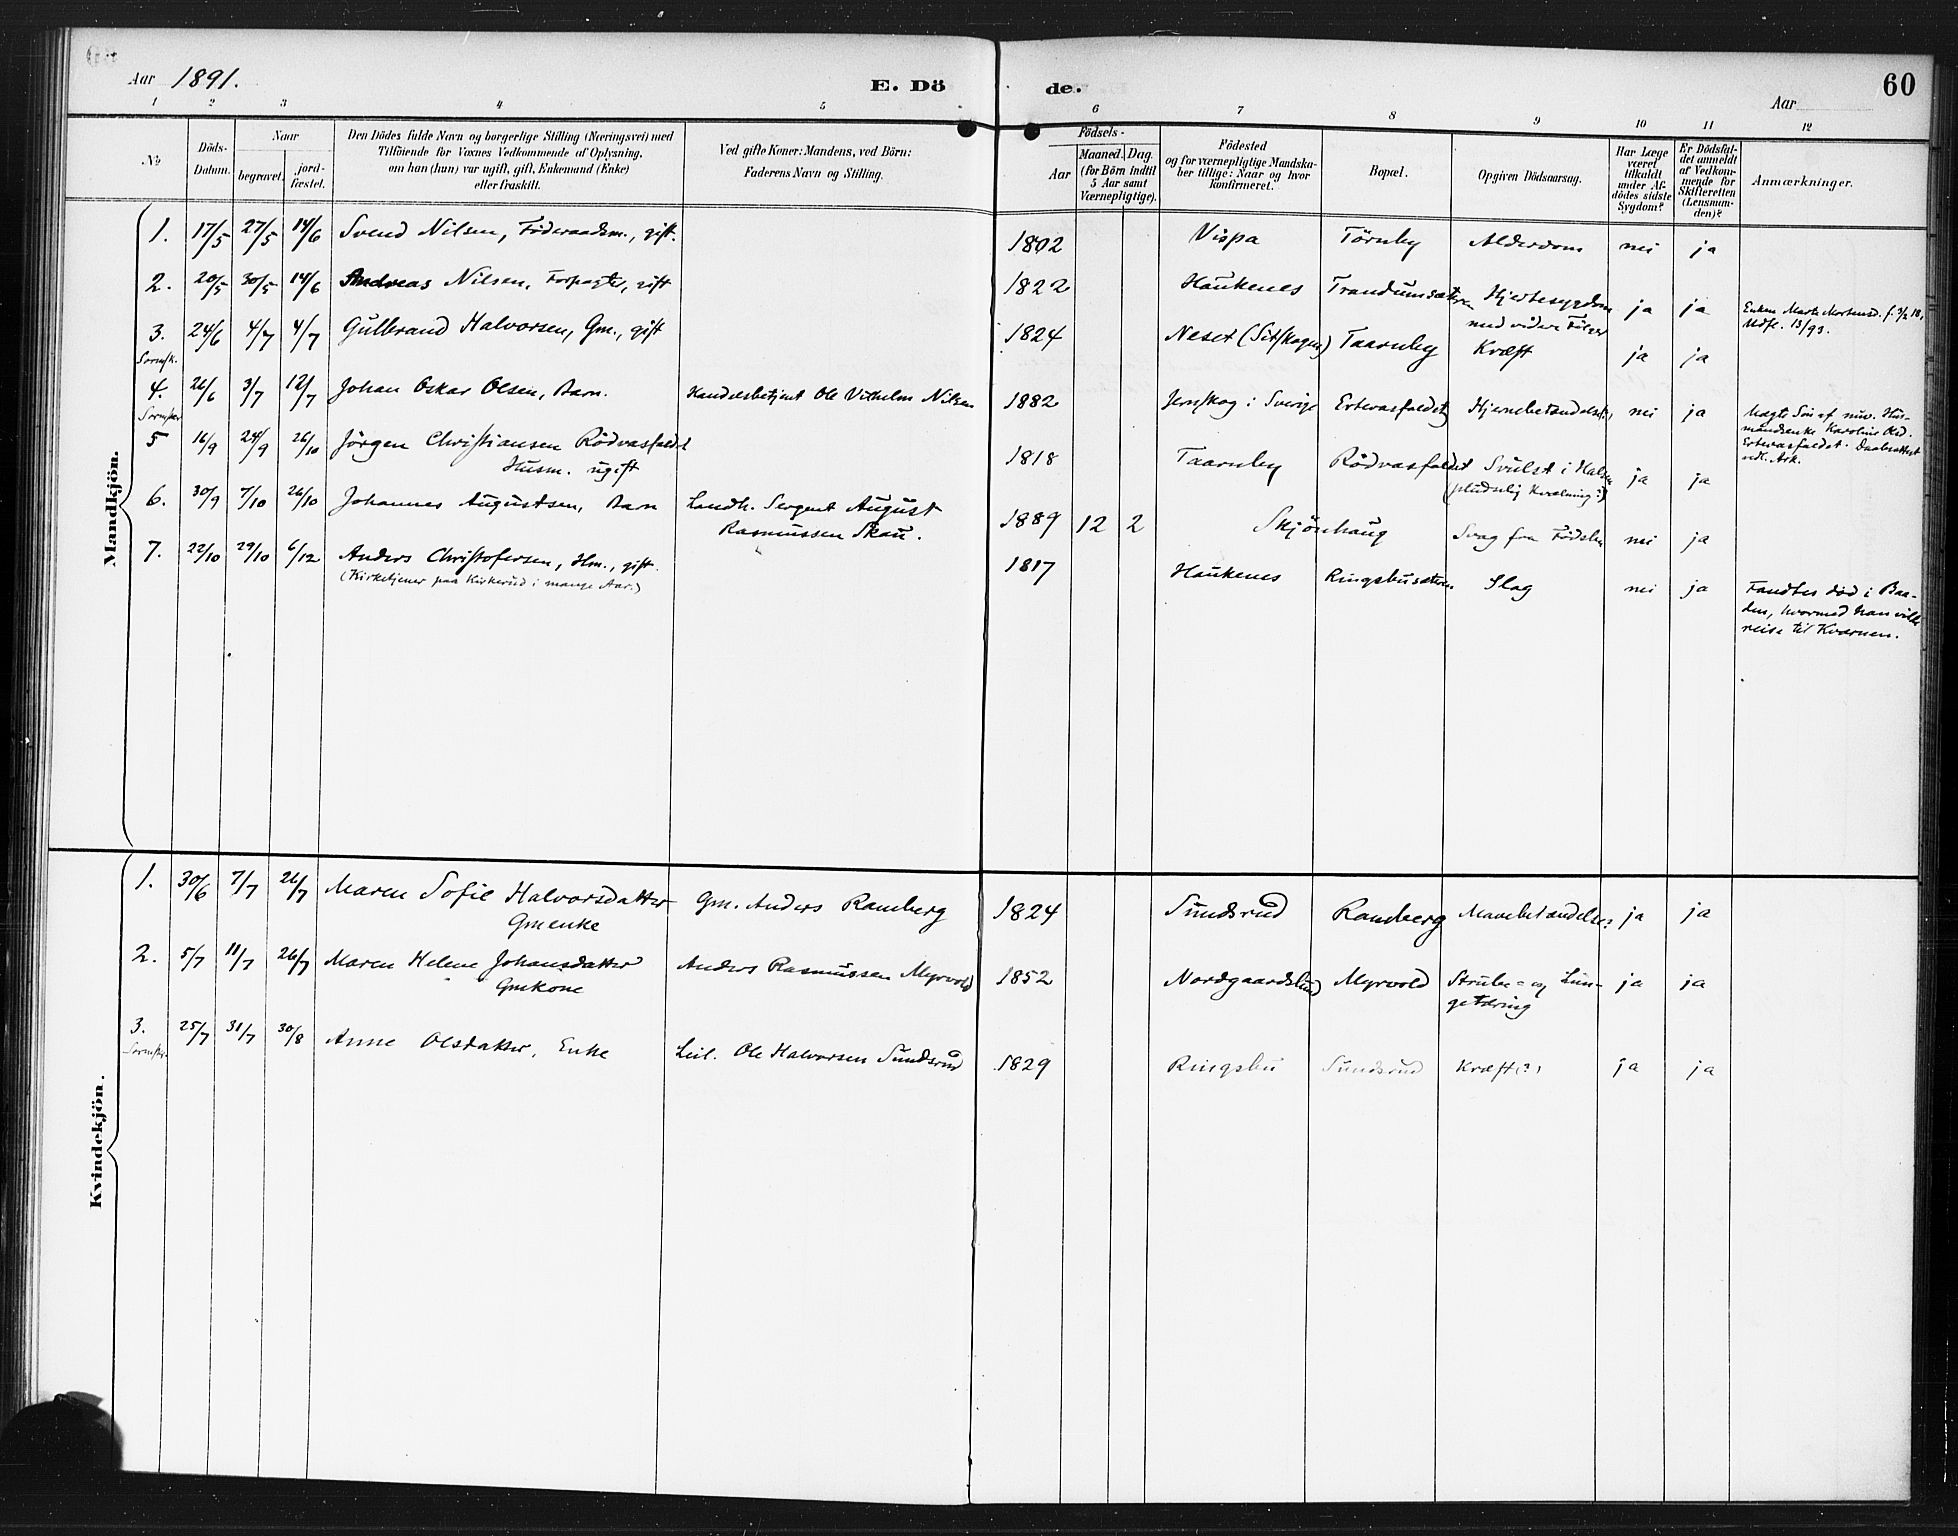 Aar 1891.
E. Dö
de.
Aar
60
1 2 3 4 5 6 7 8 9 10 11 12
No
Döds-Datum.
Naar
begravet.
jord-fæstet.
Den Dödes fulde Navn og borgerlige Stilling (Næringsvei) med
Tilföiende for Voxnes Vedkommende af Oplysning,
om han (hun) var ugift, gift, Enkemand (Enke)
eller fraskilt.
Ved gifte Koner: Mandens, ved Börn:
Faderens Navn og Stilling.
Födsels-
Aar
Maaned. Dag.
(for Börn indtil
5 Aar samt
Værnepligtige).
Födested
og for værnepligtige Mandska-
ber tillige: Naar og hvor
konfirmeret.
Bopæl.
Opgiven Dödsaarsag.
Har Læge
været
tilkaldt
under Af-
dödes sidste
Sygdom?
Er Dödsfal-
det anmeldt
af Vedkom-
mende for
Skifteretten
(Lensman-
den)?
Anmærkninger.
Mandkjön.
1. 17/5 27/5 14/6 Svend Nilsen, Föderaadsm., gift. 1802 Vispa Törnby Alderdom nei ja
2. 20/5 30/5 14/6 Andreas Nilsen, Forpagter, gift 1822 Haukenes Trandumsæteren Hjertesygdom ja ja
med videre Følger
Enken Marte Mortensd. f. 3/2 18,
Udfl. 13/93.
3. 24/6 4/7 4/7 Gulbrand Halvorsen, Gm., gift 1824 Neset (Sitskogen) Taarnby Kræft ja ja
4. 26/6 3/7 12/7 Johan Oskar Olsen, Barn. Handelsbetjent Ole Vilhelm Nilsen 1882 Jernskog i Sverige Ertevasfaldet Hjernebetændelse nei ja
Uægte Sön af nuv. Hus-
mandsenke Karoline Olsd.
Ertevasfaldet.
vedl. Ark.
5 16/9 24/9 26/10 Jörgen Christiansen Rödvasfaldet
Husm. ugift
1818 Taarnby Rödvasfaldet Svulst i Halsen ja ja
(pludselig Kvælning?)
6. 30/9 7/10 26/10 Johannes Augustsen, Barn Landh. Sergent August
Rasmussen Skau.
1889 12 2 Skjönhaug Svag fra Födslen nei ja
7. 22/10 29/10 6/12 Anders Christofersen, Hm., gift. 1817 Haukenes Ringsbusæteren Slag nei ja
(Kirketjener paa Kirkerud i mange Aar.)
Fandtes död i Baa-
den, hvormed han vilde
reise til Kværnen.
Kvindekjön.
1. 30/6 7/7 26/7 Maren Sofie Halvorsdatter Gm. Anders Ramberg 1824 Sundsrud Ramberg Mavebetændelse? ja ja
Gmenke
2. 5/7 11/7 26/7 Maren Helene Johansdatter Anders Rasmussen Myrvold 1852 Nordgaardslund Myrvold Strube- og Lun- ja ja
Gmkone
getæring
3. 25/7 31/7 30/8 Anne Olsdatter, Enke Leil. Ole Halvorsen Sundsrud 1829 Ringsbu Sundsrud Kræft(?) ja ja